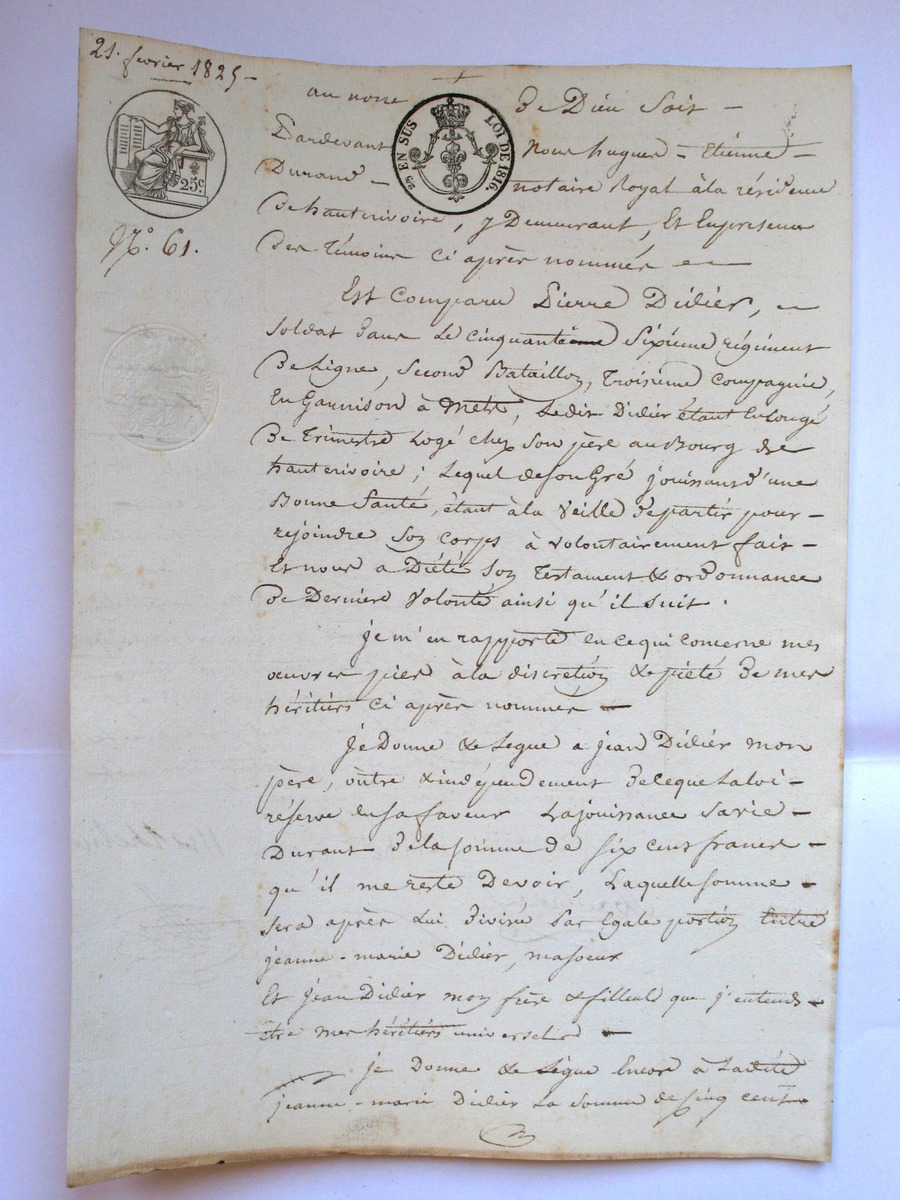 21. fevrier 1825 -
au nom de Dieu Soit -
25 EN SUS LOI DE 1816.
25c
Pardevant Nous hugues - Etienne -
Durand - notaire Royal à la résidence
N.° 61.
de hauterivoire, y Demeurant, Et En presence
des témoins Ci après nommés
Est Comparu Pierre Didier,
Soldat dans Le Cinquantième Sixième régiment
De Ligne, Second Bataillon, Troisième Compagnie,
En Garnison à Metz, Ledit Didier étant En Congé
De Trimestre Logé chez Son père au Bourg de
hauterivoire ; Lequel de son Gré jouissant d'une
Bonne Santé, étant à la Veille de partir pour -
rejoindre Son Corps à volontairement fait -
Et nous a Dicté Son Testament & ordonnance
De Derniere Volonté ainsi qu'il suit .
Je m'en rapporte En ce qui Concerne mes
oeuvres pies à la discretion & piété de mes
héritiers Ci après nommés -
Je Donne & Legue a jean Didier mon
père, oûtre & indépendement de ce que La loi -
réserve En sa faveur La jouissance Sa vie -
Durant de la somme de Six Cent francs -
qu'il me reste Devoir, Laquelle somme -
Sera après Lui divisée Par Egale portion Entre
jeanne - marie Didier, ma soeur
Et Jean Didier mon frère & filleul que j'entends -
être mes héritiers universels -
je Donne & Lègue Encore à Ladite
jeanne - marie Didier La Somme de Cinq Cent